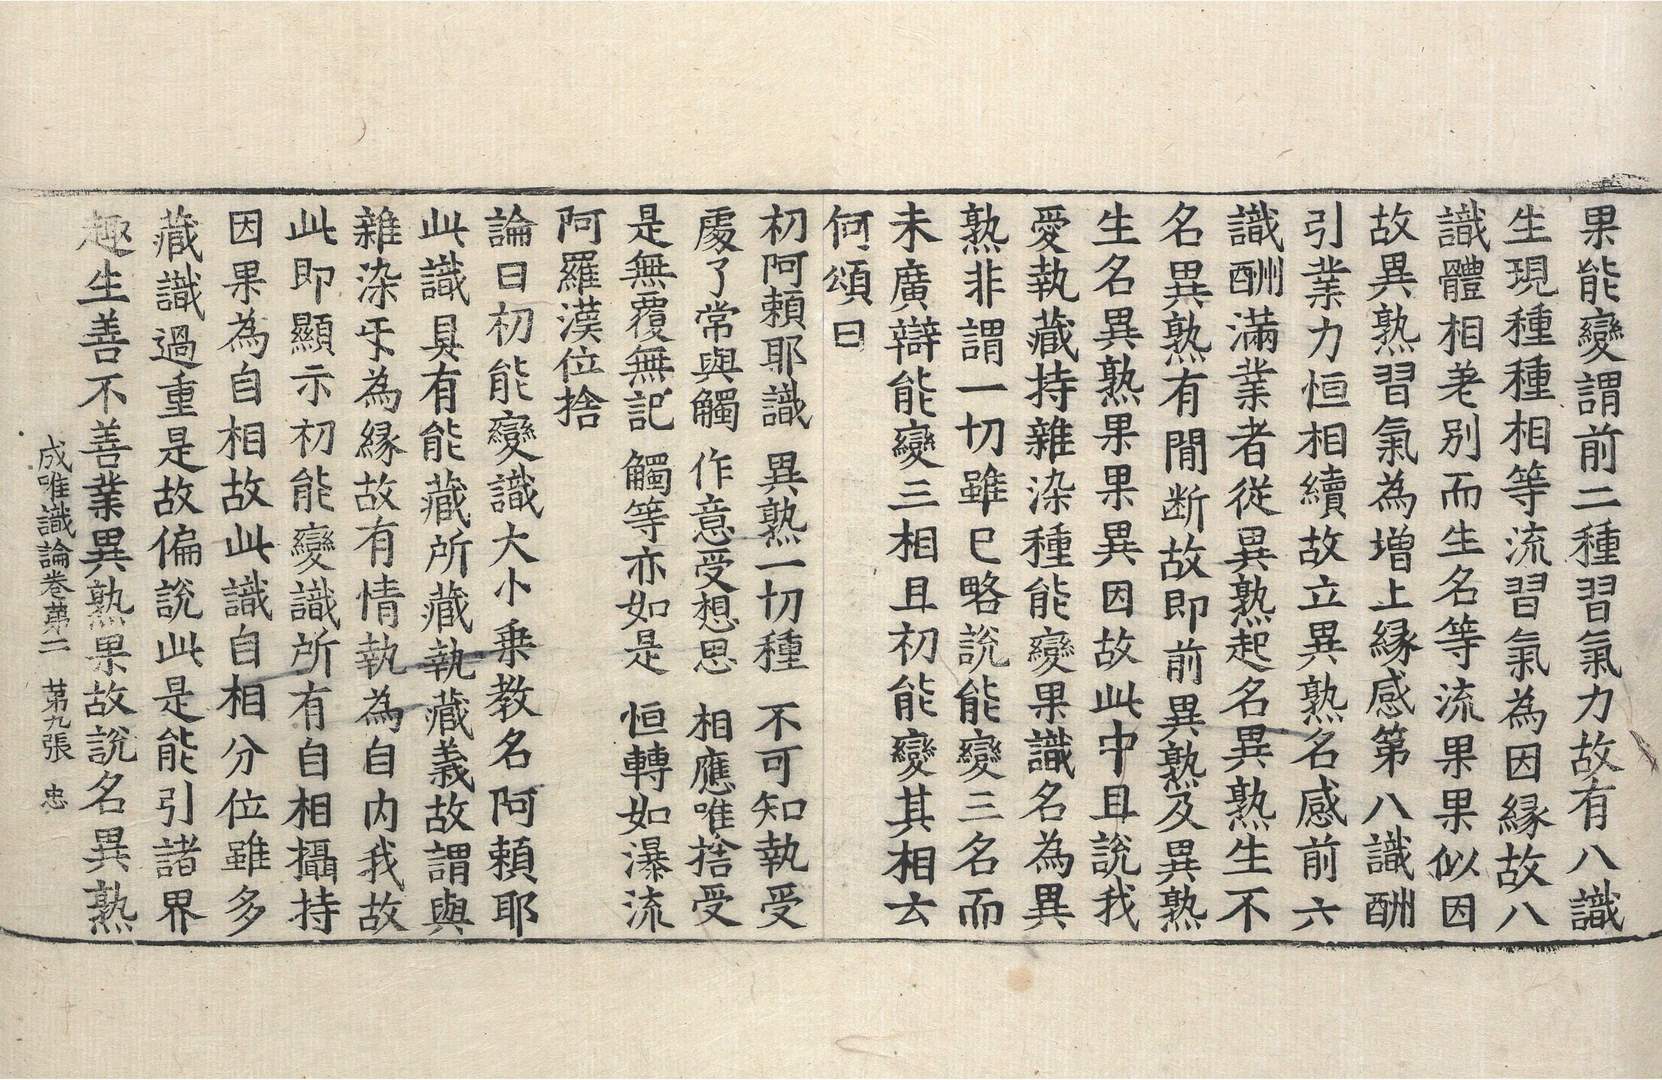 果能變謂前二種習氣力故有八識
生現種種相等流習氣為因縁故八
識體相差別而生名等流果果似因
故異熟習氣為增上縁感第八識酬
引業力恒相續故立異熟名感前六
識酬滿業者從異熟起名異熟生不
名異熟有間断故即前異熟及異熟
生名異熟果果異因故此中且説我
愛執藏持雜染種能變果識名為異
熟非謂一切雖巳略説能變三名而
未廣辯能變三相且初能變其相云
何頌曰
初阿頼耶識 異熟一切種 不可知執受
處了常與觸 作意受想思 相應唯捨受
是無覆無記 觸等亦如是 恒轉如瀑流
阿羅漢位捨
論曰初能變識大小乗教名阿頼耶
此識具有能藏所藏執藏義故謂與
雜染㸦為縁故有情執為自内我故
此即顯示初能變識所有自相攝持
因果為自相故此識自相分位雖多
藏識過重是故偏説此是能引諸界
趣生善不善業異熟果故説名異熟
成唯識論卷苐二 苐九張 忠